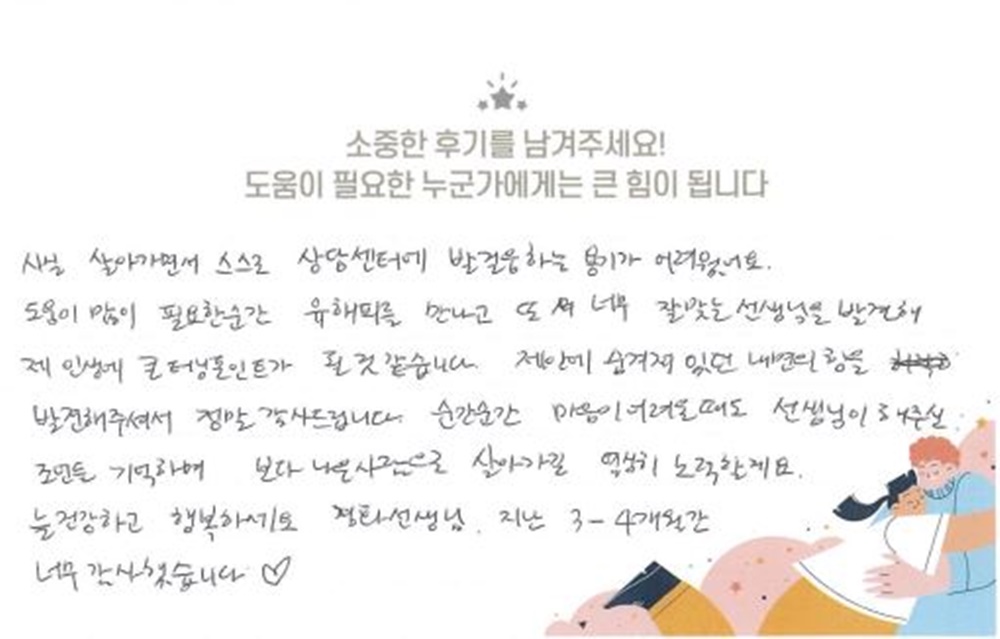 소중한 후기를 남겨주세요!
도움이 필요한 누군가에게는 큰 힘이 됩니다
사실 살아가면서 스스로 상담센터에 발걸음하는 용기가 어려웠어요.
도움이 많이 필요한순간 유해피를 만나고 또 너무 잘맞는 선생님을 발견해
제 인생에 큰 터닝포인트가 될 것 같습니다. 제안에 숨겨져 있던 내면의 힘을
발견해주셔서 정말 감사드립니다. 순간순간 마음이 어려울때도 선생님이 해주신
조언들 기억하며 보다 나은사람으로 살아가길 열심히 노력할게요.
늘 건강하고 행복하세요 선생님. 지난 3-4개월간
너무 감사했습니다 ♡